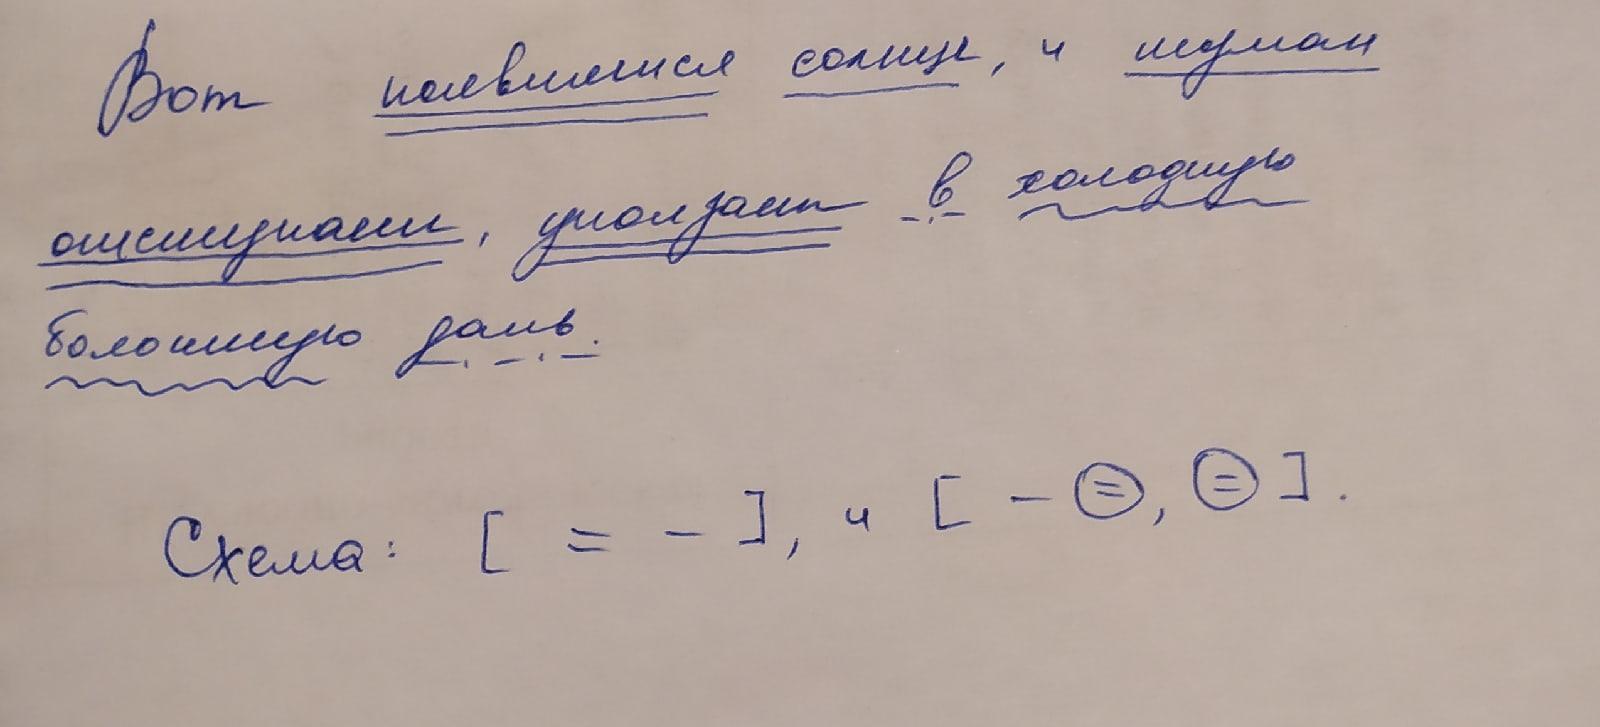 Вот появляется солнце, и туман
отступает, уползает в холодную
болотную даль.
Схема: [ = - ], и [ - =, = ].